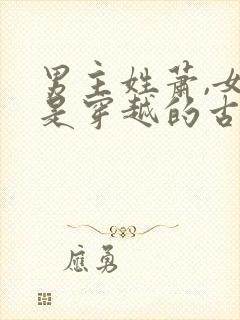 男主姓萧,女
是穿越的古
应勇